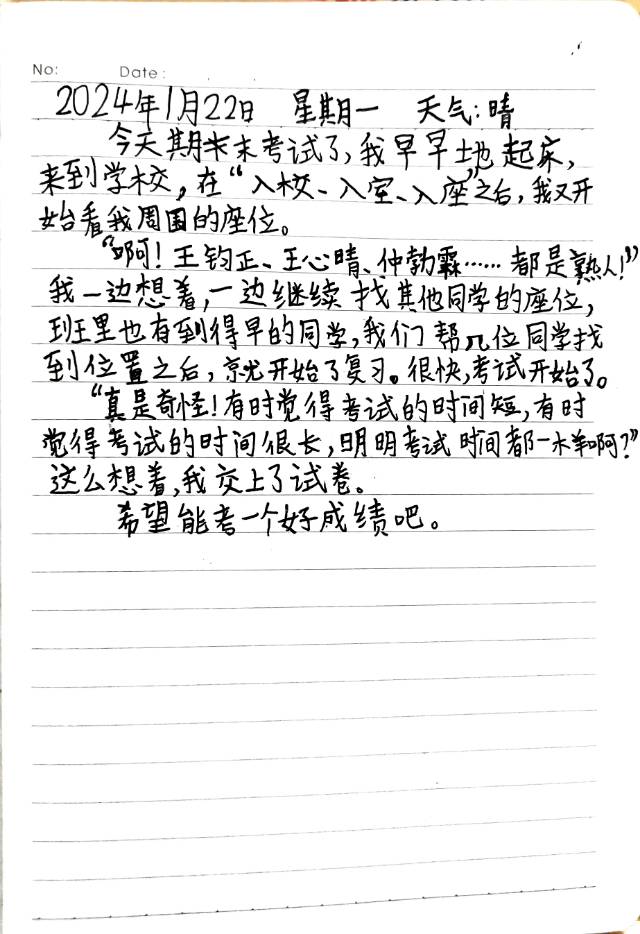 No: Date:
2024年1月22日 星期一 天气:晴
今天期末考试了,我早早地起床,
来到学校,在“入校、入室、入座”之后,我又开
始看我周围的座位。
“啊!王钧正、王心晴、仲勃霖……都是熟人!”
我一边想着,一边继续找其他同学的座位,
班里也有到得早的同学,我们帮几位同学找
到位置之后,就开始了复习。很快,考试开始了。
“真是奇怪!有时觉得考试的时间短,有时
觉得考试的时间很长,明明考试时间都一样啊?”
这么想着,我交上了试卷。
希望能考一个好成绩吧。